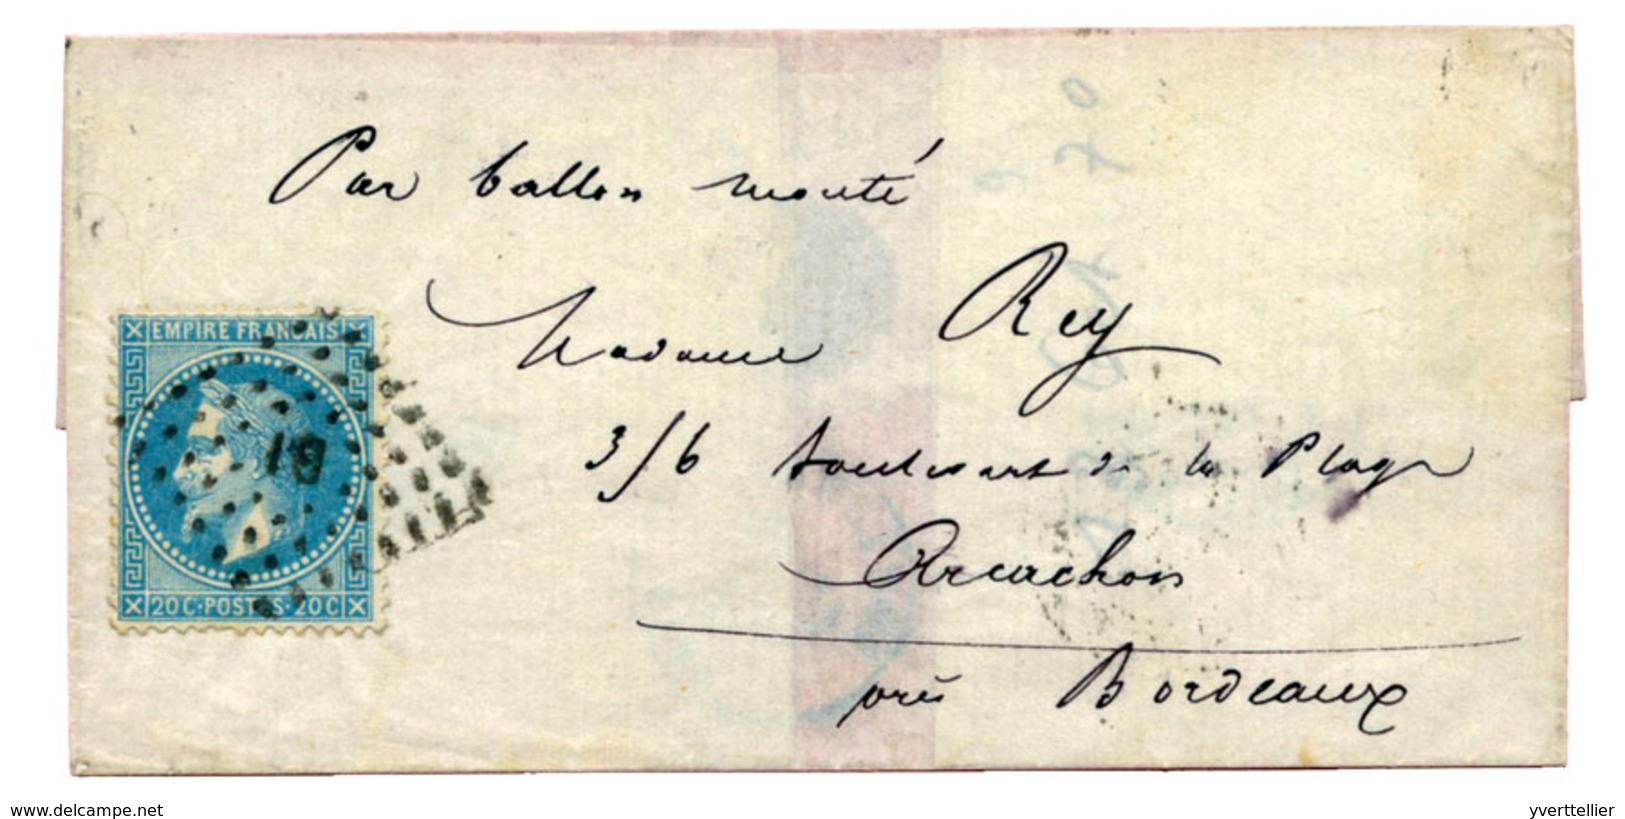 Par ballon monté
Madame Rey
3/6 boulevart de la Plage
Arcachon
près Bordeaux
EMPIRE FRANCAIS
18
20 C·POSTES·20 C
www.delcampe.net
yverttellier